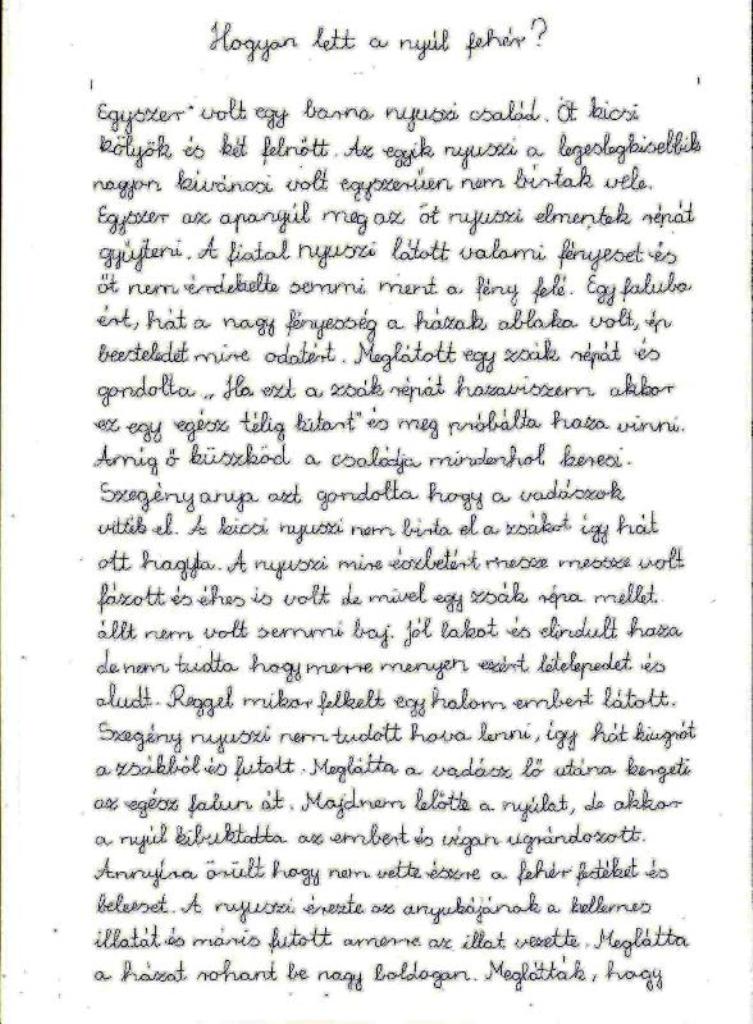 Hogyan lett a nyúl fehér?
Egyszer volt egy barna nyuszi család. Öt kicsi
kölyök és két felnőtt. Az egyik nyuszi a legeslegkisebbik
nagyon kiváncsi volt egyszerűen nem birtak vele.
Egyszer az apanyúl meg az öt nyuszi elmentek répát
gyűjteni. A fiatal nyuszi látott valami fényeset és
őt nem érdekelte semmi ment a fény felé. Egy faluba
ért, hát a nagy fényesség a házak ablaka volt, én
beesteledet mire odatért. Meglátott egy zsák répát és
gondolta „Ha ezt a zsák répát hazaviszem akkor
ez egy egész télig kitart" és meg próbálta haza vinni.
Amig ő küszköd a családja mindenhol keresi.
Szegény anya azt gondolta hogy a vadászok
vitték el. A kicsi nyuszi nem birta el a zsákot így hát
ott hagyta. A nyuszi mire észbetért messze messze volt
fázott és éhes is volt de mivel egy zsák répa mellet
állt nem volt semmi baj. Jól lakot és elindult haza
de nem tudta hogy merre menyen ezért letelepedet és
aludt. Reggel mikor felkelt egy halom embert látott.
Szegény nyuszi nem tudott hova lenni, így hát kiugrót
a zsákból és futott. Meglátta a vadász lő utána kergeti
az egész falun át. Majdnem lelőtte a nyúlat, de akkor
a nyúl kibuktatta az embert és vígan ugrándozott.
Annyira örült hogy nem vette észre a fehér festéket és
beleeset. A nyuszi érezte az anyukájának a kellemes
illatát és máris futott amerre az illat vezette. Meglátta
a házat rohant be nagy boldogan. Meglátták, hogy